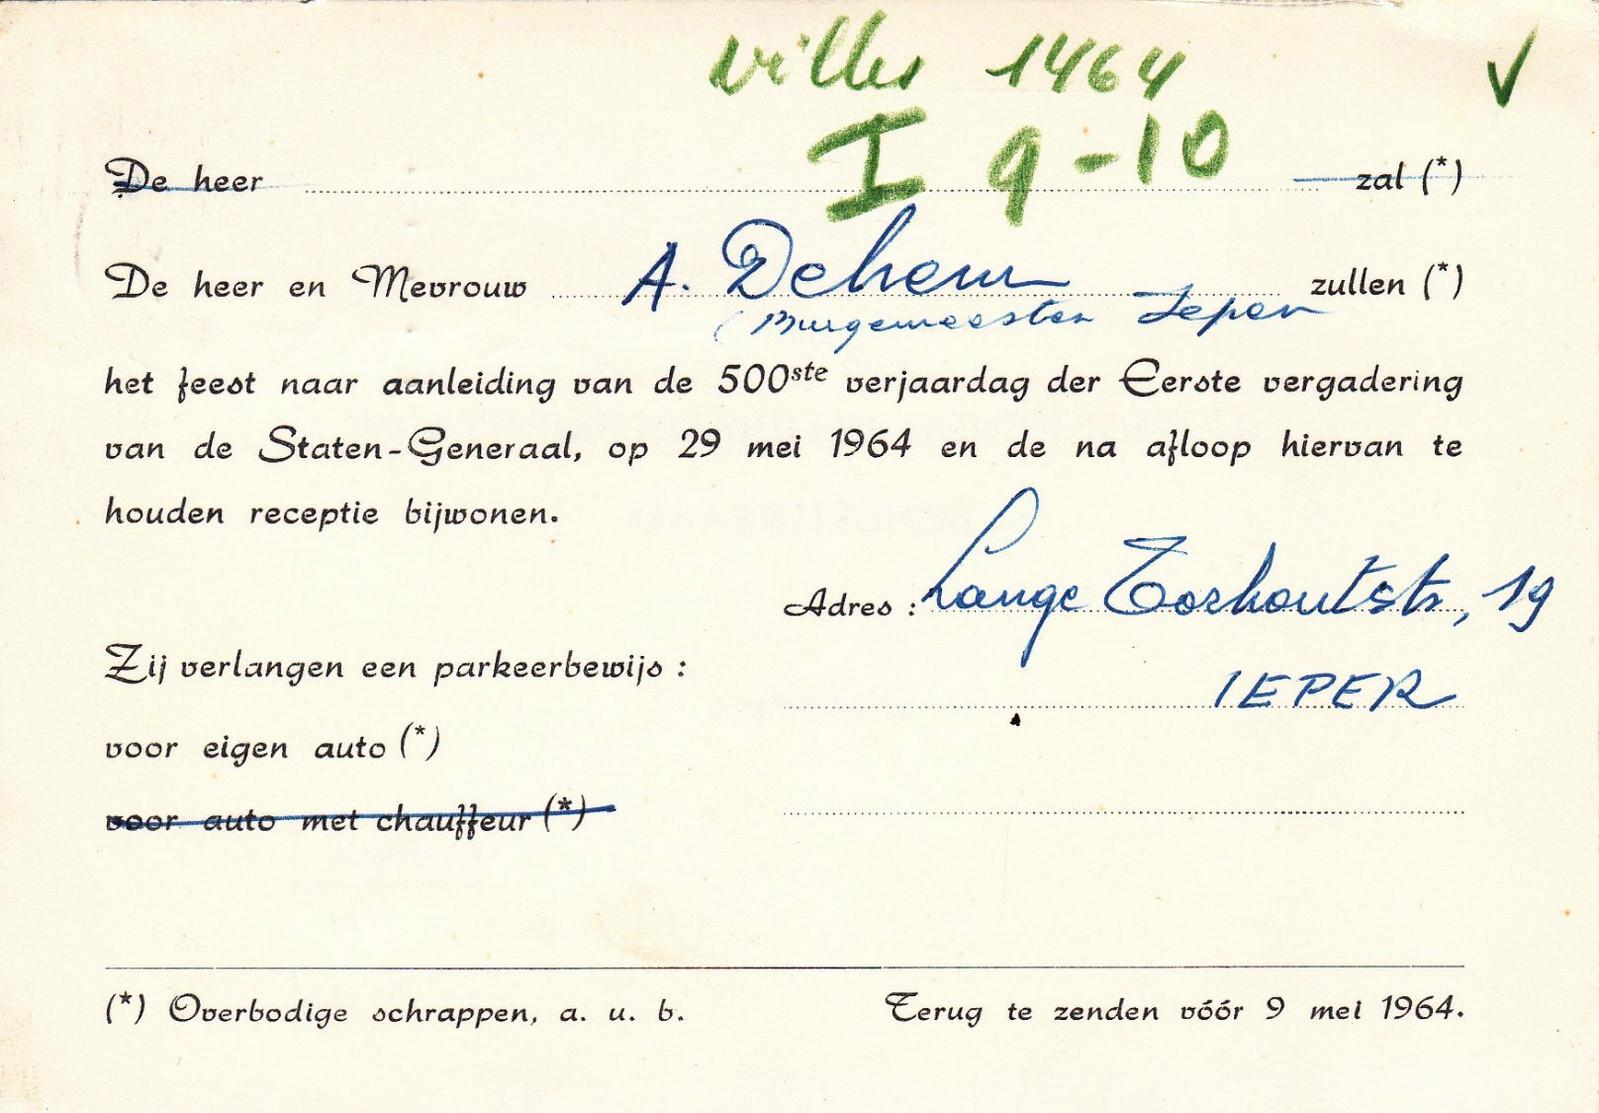 villes 1464
I 9-10
De heer zal (*)
De heer en Mevrouw A. Dehem zullen (*)
(Burgemeester Ieper
het feest naar aanleiding van de 500ste verjaardag der Eerste vergadering
van de Staten-Generaal, op 29 mei 1964 en de na afloop hiervan te
houden receptie bijwonen.
Adres : Lange Torhoutstr, 19
IEPER
Zij verlangen een parkeerbewijs :
voor eigen auto (*)
voor auto met chauffeur (*)
(*) Overbodige schrappen, a. u. b. Terug te zenden vóór 9 mei 1964.